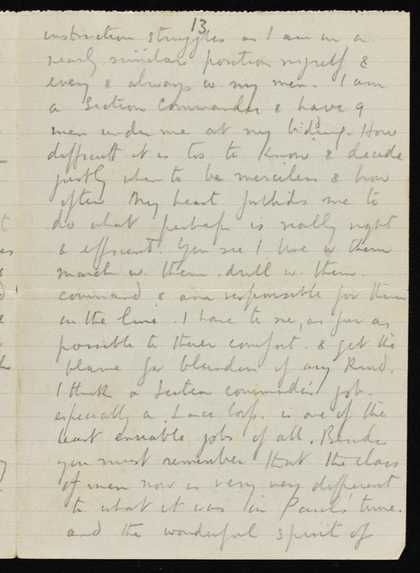 13
instruction struggles as I am in a
nearly similar position myself &
every & always w. my men. I am
a Section Commander & have 9
men under me at my bidding. How
difficult it is too to know & decide
justly when to be merciless & how
often my heart forbids me to
do what perhaps is really right
& efficient. You see I live w. them
march w. them. drill w. them.
command & am responsible for them
in the line. I have to see, as far as
possible to their comfort. & get the
blame for blunders of any kind.
I think a Section commander's job.
especially a Lance Corp. is one of the
least enviable jobs of all. Besides
you must remember that the class
of men now is very very different
to what it was in Paul's time.
and the wonderful spirit of